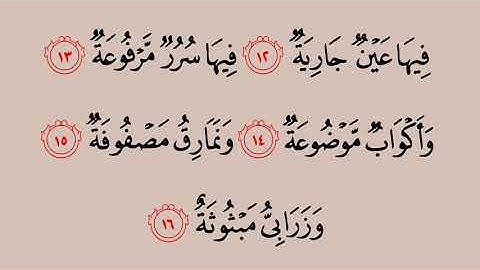 فِيهَا عَيْنٌ جَارِيَةٌ ١٢ فِيهَا سُرُرٌ مَّرْفُوعَةٌ ١٣
وَأَكْوَابٌ مَّوْضُوعَةٌ ١٤ وَنَمَارِقُ مَصْفُوفَةٌ ١٥
وَزَرَابِىُّ مَبْثُوثَةٌ ١٦